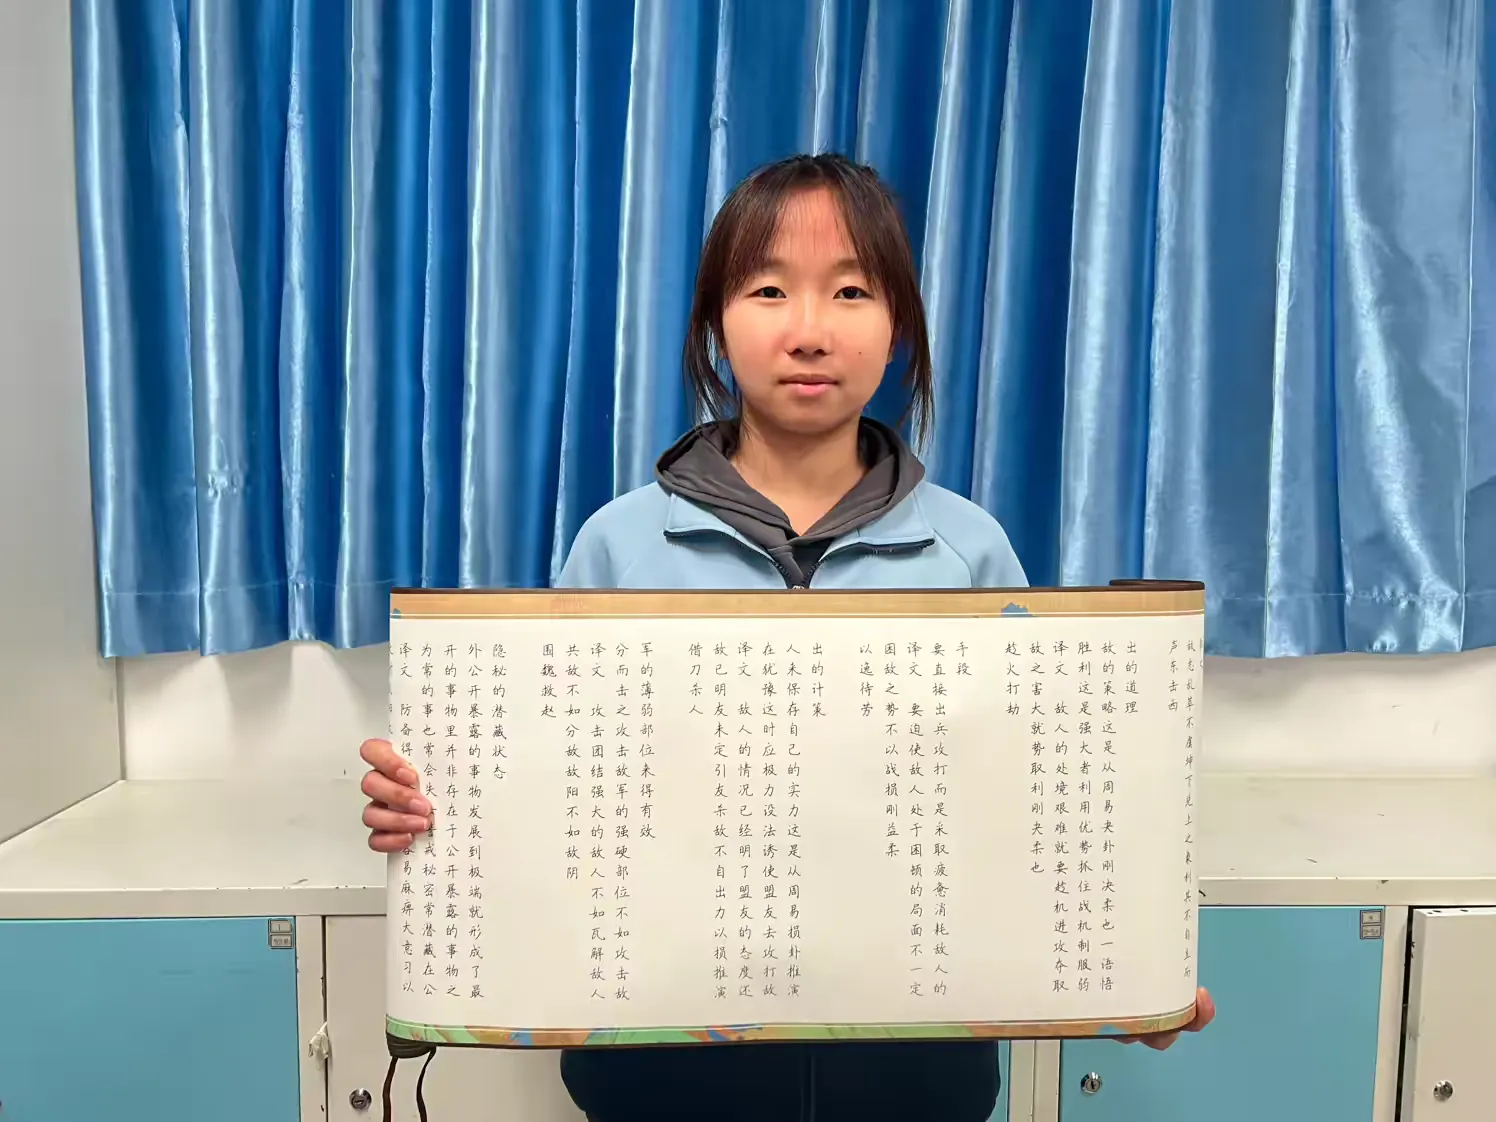 敌志乱萃不虞坤下兑上之象利其不自主而
声东击西
出的道理
敌的策略这是从周易夬卦刚决柔也一语悟
胜利这是强大者利用优势抓住战机制服弱
译文 敌人的处境艰难就要趁机进攻夺取
敌之害大就势取利刚夬柔也
趁火打劫
手段
要直接出兵攻打而是采取疲惫消耗敌人的
译文 要迫使敌人处于困顿的局面不一定
困敌之势不以战损刚益柔
以逸待劳
出的计策
人来保存自己的实力这是从周易损卦推演
在犹豫这时应极力设法诱使盟友去攻打敌
译文 敌人的情况已经明了盟友的态度还
敌已明友未定引友杀敌不自出力以损推演
借刀杀人
军的薄弱部位来得有效
分而击之攻击敌军的强硬部位不如攻击敌
译文 攻击团结强大的敌人不如瓦解敌人
共敌不如分敌敌阳不如敌阴
围魏救赵
隐秘的潜藏状态
外公开暴露的事物发展到极端就形成了最
开的事物里并非存在于公开暴露的事物之
为常的事也常会失 戒秘密常潜藏在公
译文 防备得 容易麻痹大意习以